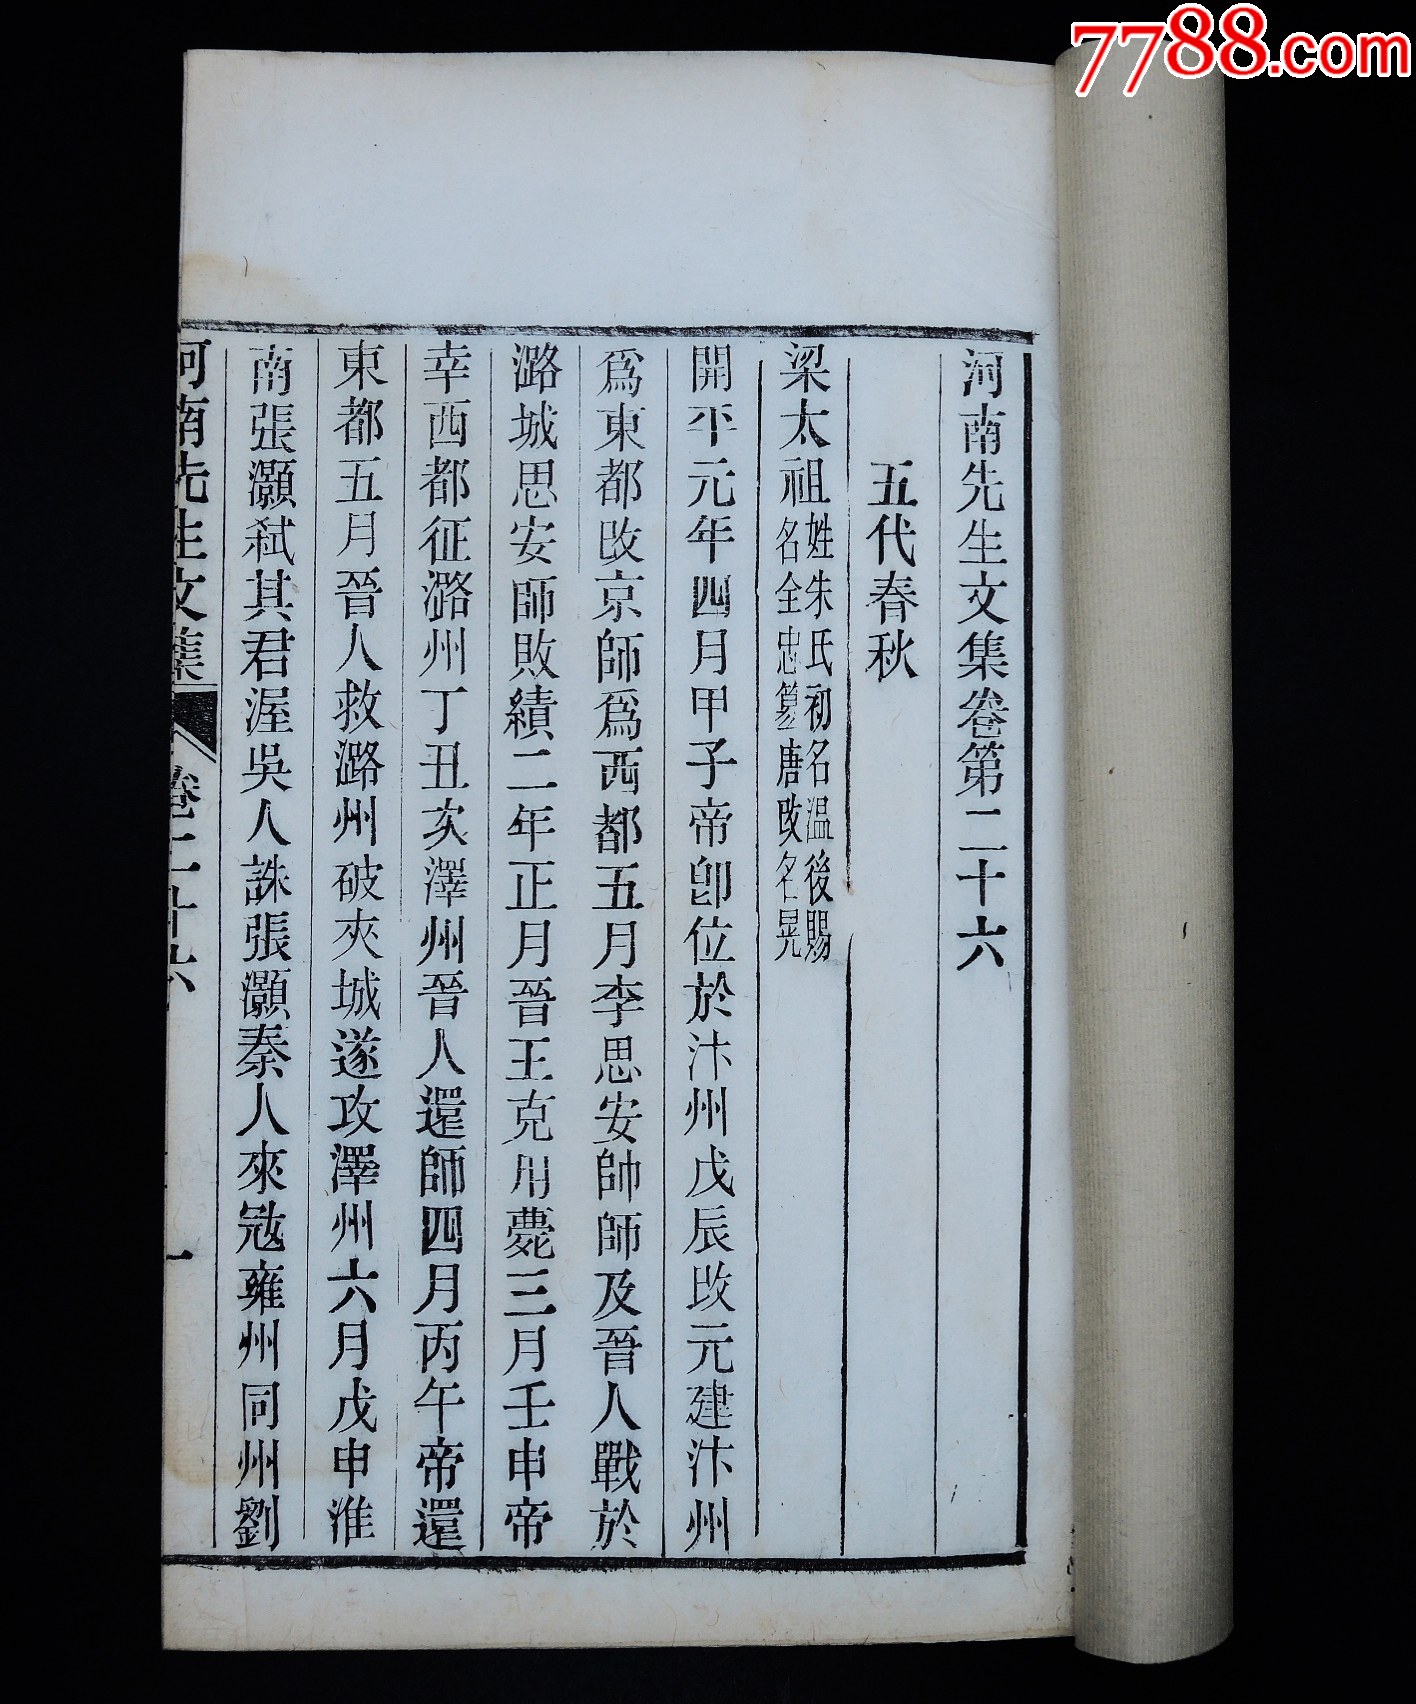 7788.com
河南先生文集卷第二十六
五代春秋
梁太祖姓朱氏初名温後賜名全忠篡唐改名晃
開平元年四月甲子帝卽位於汴州戊辰改元建汴州
爲東都改京師爲西都五月李思安帥師及晉人戰於
潞城思安師敗績二年正月晉王克用薨三月壬申帝
幸西都征潞州丁丑次澤州晉人還師四月丙午帝還
東都五月晉人救潞州破夾城遂攻澤州六月戊申淮
南張灝弑其君渥吳人誅張灝秦人來寇雍州同州劉
河南先生文集 卷二十六 一